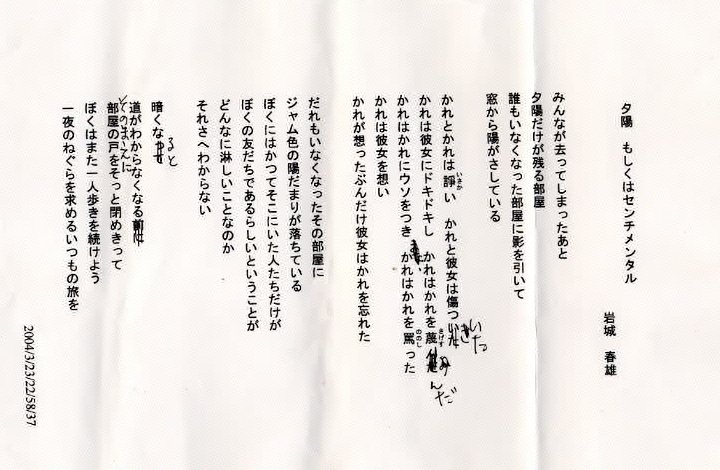 夕陽　もしくはセンチメンタル
岩城　春雄
みんなが去ってしまったあと
夕陽だけが残る部屋
誰もいなくなった部屋に影を引いて
窓から陽がさしている
かれとかれは諍い　かれと彼女は傷つきいた
いさか
かれは彼女にドキドキし　かれはかれを蔑んだ
さげす
かれはかれにウソをつき　かれはかれを罵った
ののし
かれは彼女を想い
かれが想ったぶんだけ彼女はかれを忘れた
だれもいなくなったその部屋に
ジャム色の陽だまりが落ちている
ぼくにはかつてそこにいた人たちだけが
ぼくの友だちであるらしいということが
どんなに淋しいことなのか
それさへわからない
暗くなると
道がわからなくなる
そのまえに
部屋の戸をそっと閉めきって
ぼくはまた一人歩きを続けよう
一夜のねぐらを求めるいつもの旅を
2004/3/23/22/58/37